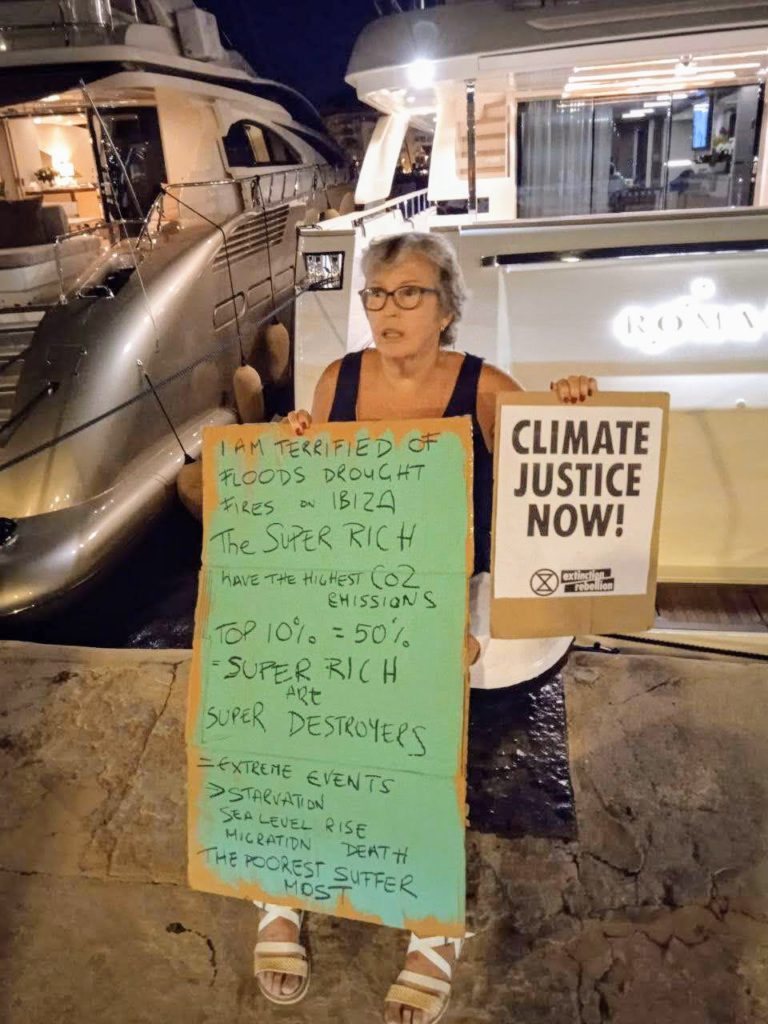 ROMA
I AM TERRIFIED OF
FLOODS DROUGHT
FIRES ON IBIZA
The SUPER RICH
HAVE THE HIGHEST CO2
EMISSIONS
TOP 10% = 50%
= SUPER RICH
ARE
SUPER DESTROYERS
= EXTREME EVENTS
→ STARVATION
SEA LEVEL RISE
MIGRATION DEATH
THE POOREST SUFFER
MOST
CLIMATE
JUSTICE
NOW!
extinction
rebellion